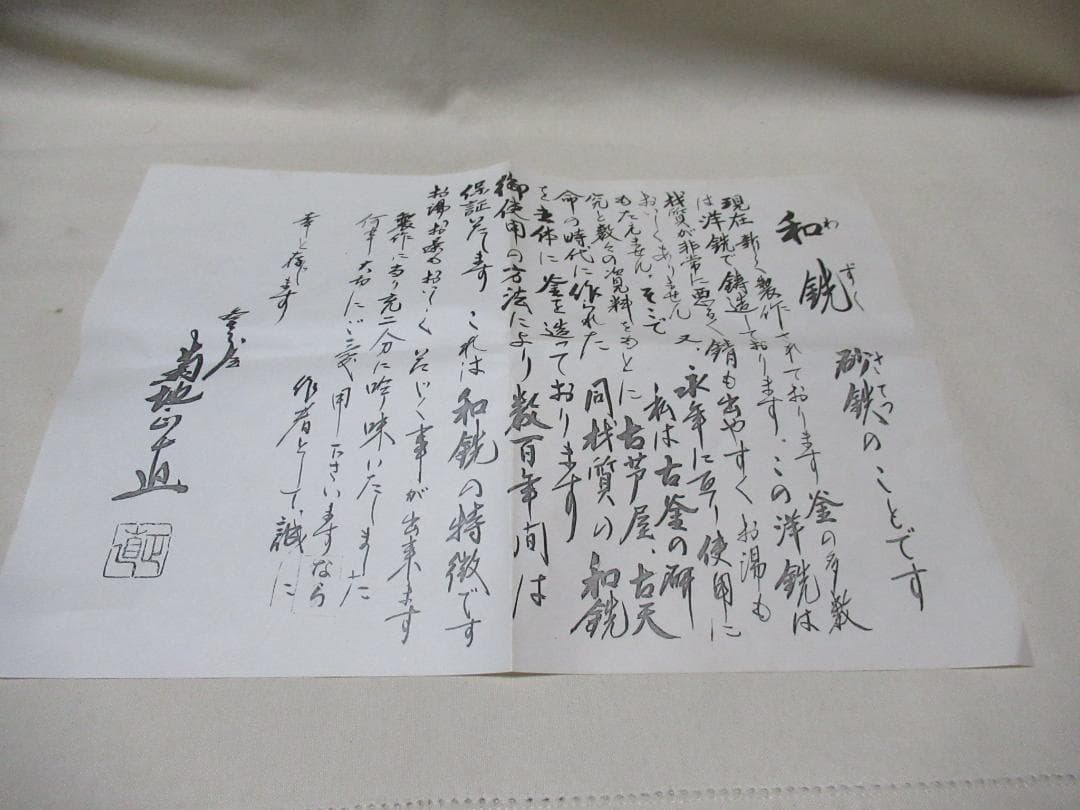 和銑 砂鉄のことです
わずく さてつ
現在新しく製作されております釜の多数
は洋銑で鋳造しております、この洋銑は
材質が非常に悪るく錆も出やすくお湯も
おいしくありません 又、永年に亘り使用に
もたえません、そこで 私は古釜の研
究と数々の資料をもとに古芦屋、古天
命の時代に作られた同材質の和銑
を主体に釜を造っております
御使用の方法により数百年間は
保証致します これは和銑の特徴です
お湯お茶もおいしく
事が出来ます
製作に当り充二分に吟味いたしました
何卒大切にご愛用下さいますなら
作者として、誠に
幸と存じます
菊地正直
正直